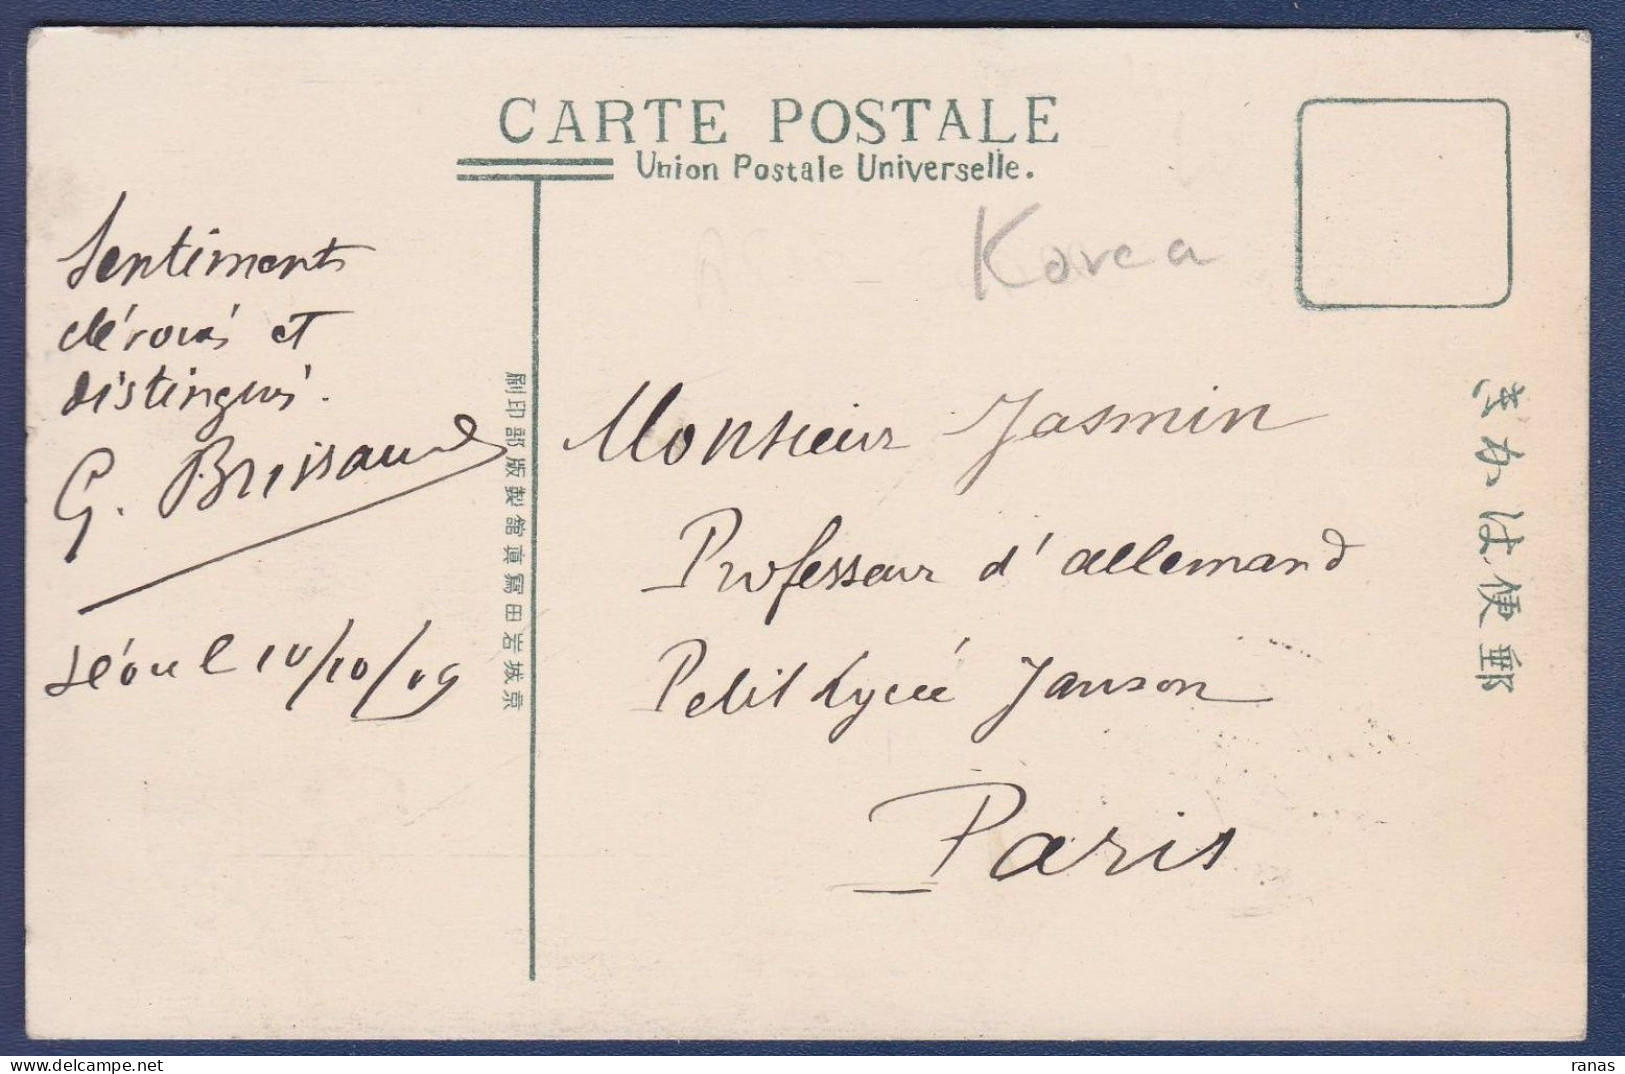 CARTE POSTALE
Union Postale Universelle.
Korea
Sentiments
dévoués et
distingués.
G. Brissaud
Séoul 10/10/09
刷印部版製館真寫田岩城京
Monsieur Jasmin
Professeur d'allemand
Petit Lycée Janson
Paris
きかは便郵
ranas